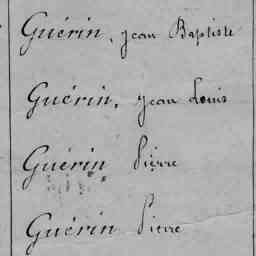 Guérin, Jean Baptiste
Guérin, Jean Louis
Guérin Pierre
Guérin Pierre